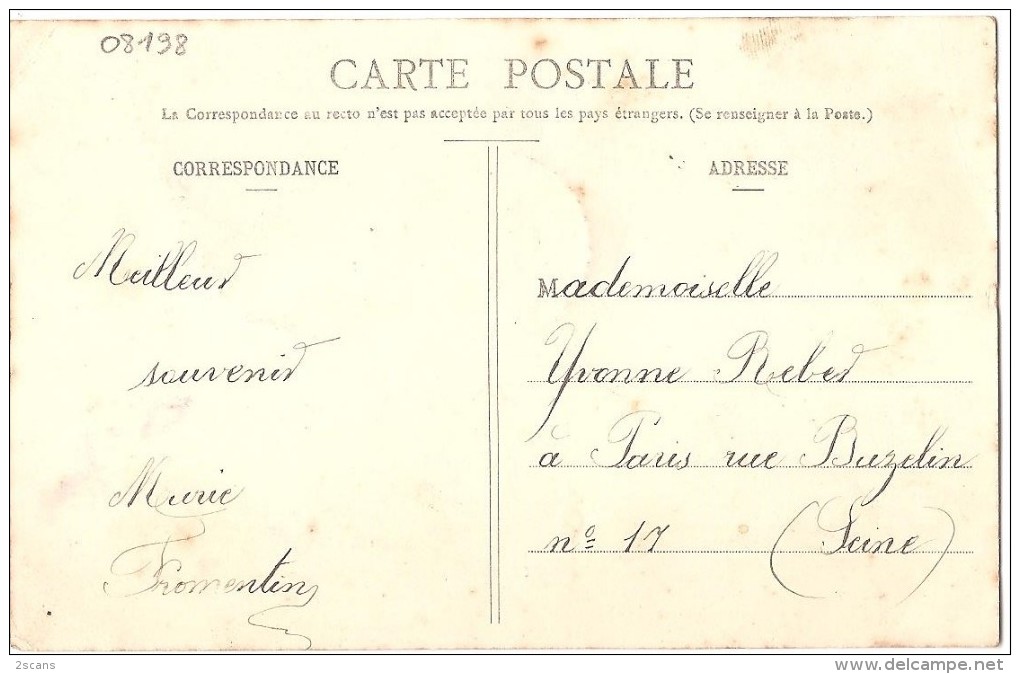 08198
CARTE POSTALE
La Correspondance au recto n'est pas acceptée par tous les pays étrangers. (Se renseigner à la Poste.)
CORRESPONDANCE
Meilleur
souvenir
Marie
Fromentin
ADRESSE
Mademoiselle
Yvonne Reber
à Paris rue Buzelin
nº 17 (Seine)
2scans
www.delcampe.net